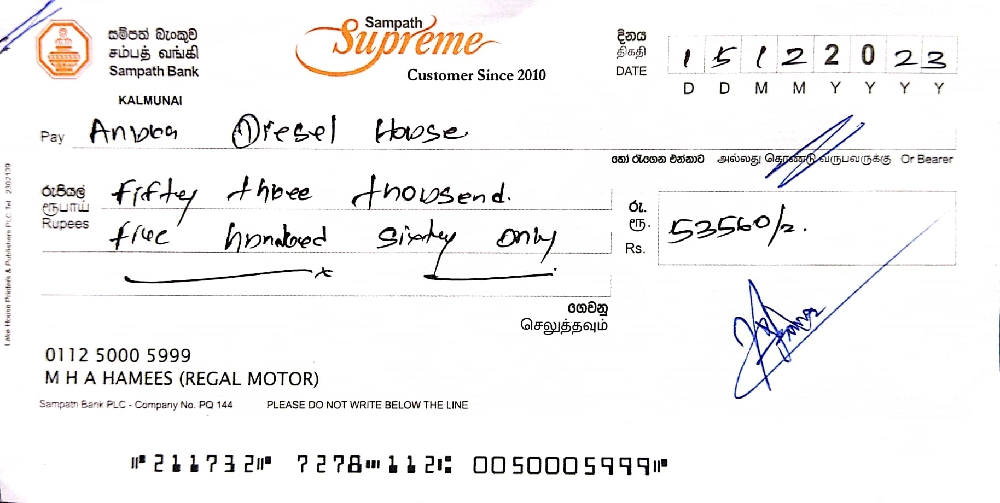 සම්පත් බැංකුව
சம்பத் வங்கி
Sampath Bank
KALMUNAI
Sampath
Supreme
Customer Since 2010
දිනය
திகதி
DATE
1 5 1 2 2 0 2 3
D D M M Y Y Y Y
Pay Diesel House
හෝ රැගෙන එන්නාට அல்லது கொண்டு வருபவருக்கு Or Bearer
රුපියල්
ரூபாய்
Rupees
fiftey three thousend.
five hondred sixtey only
රු.
ரூ.
Rs.
53560/=.
ගෙවනු
செலுத்தவும்
0112 5000 5999
M H A HAMEES (REGAL MOTOR)
Sampath Bank PLC - Company No. PQ 144 PLEASE DO NOT WRITE BELOW THE LINE
Lake House Printers & Publishers PLC Tel : 2302139
⑈211732⑈ 7278⑉112⑆ 0050005999⑈